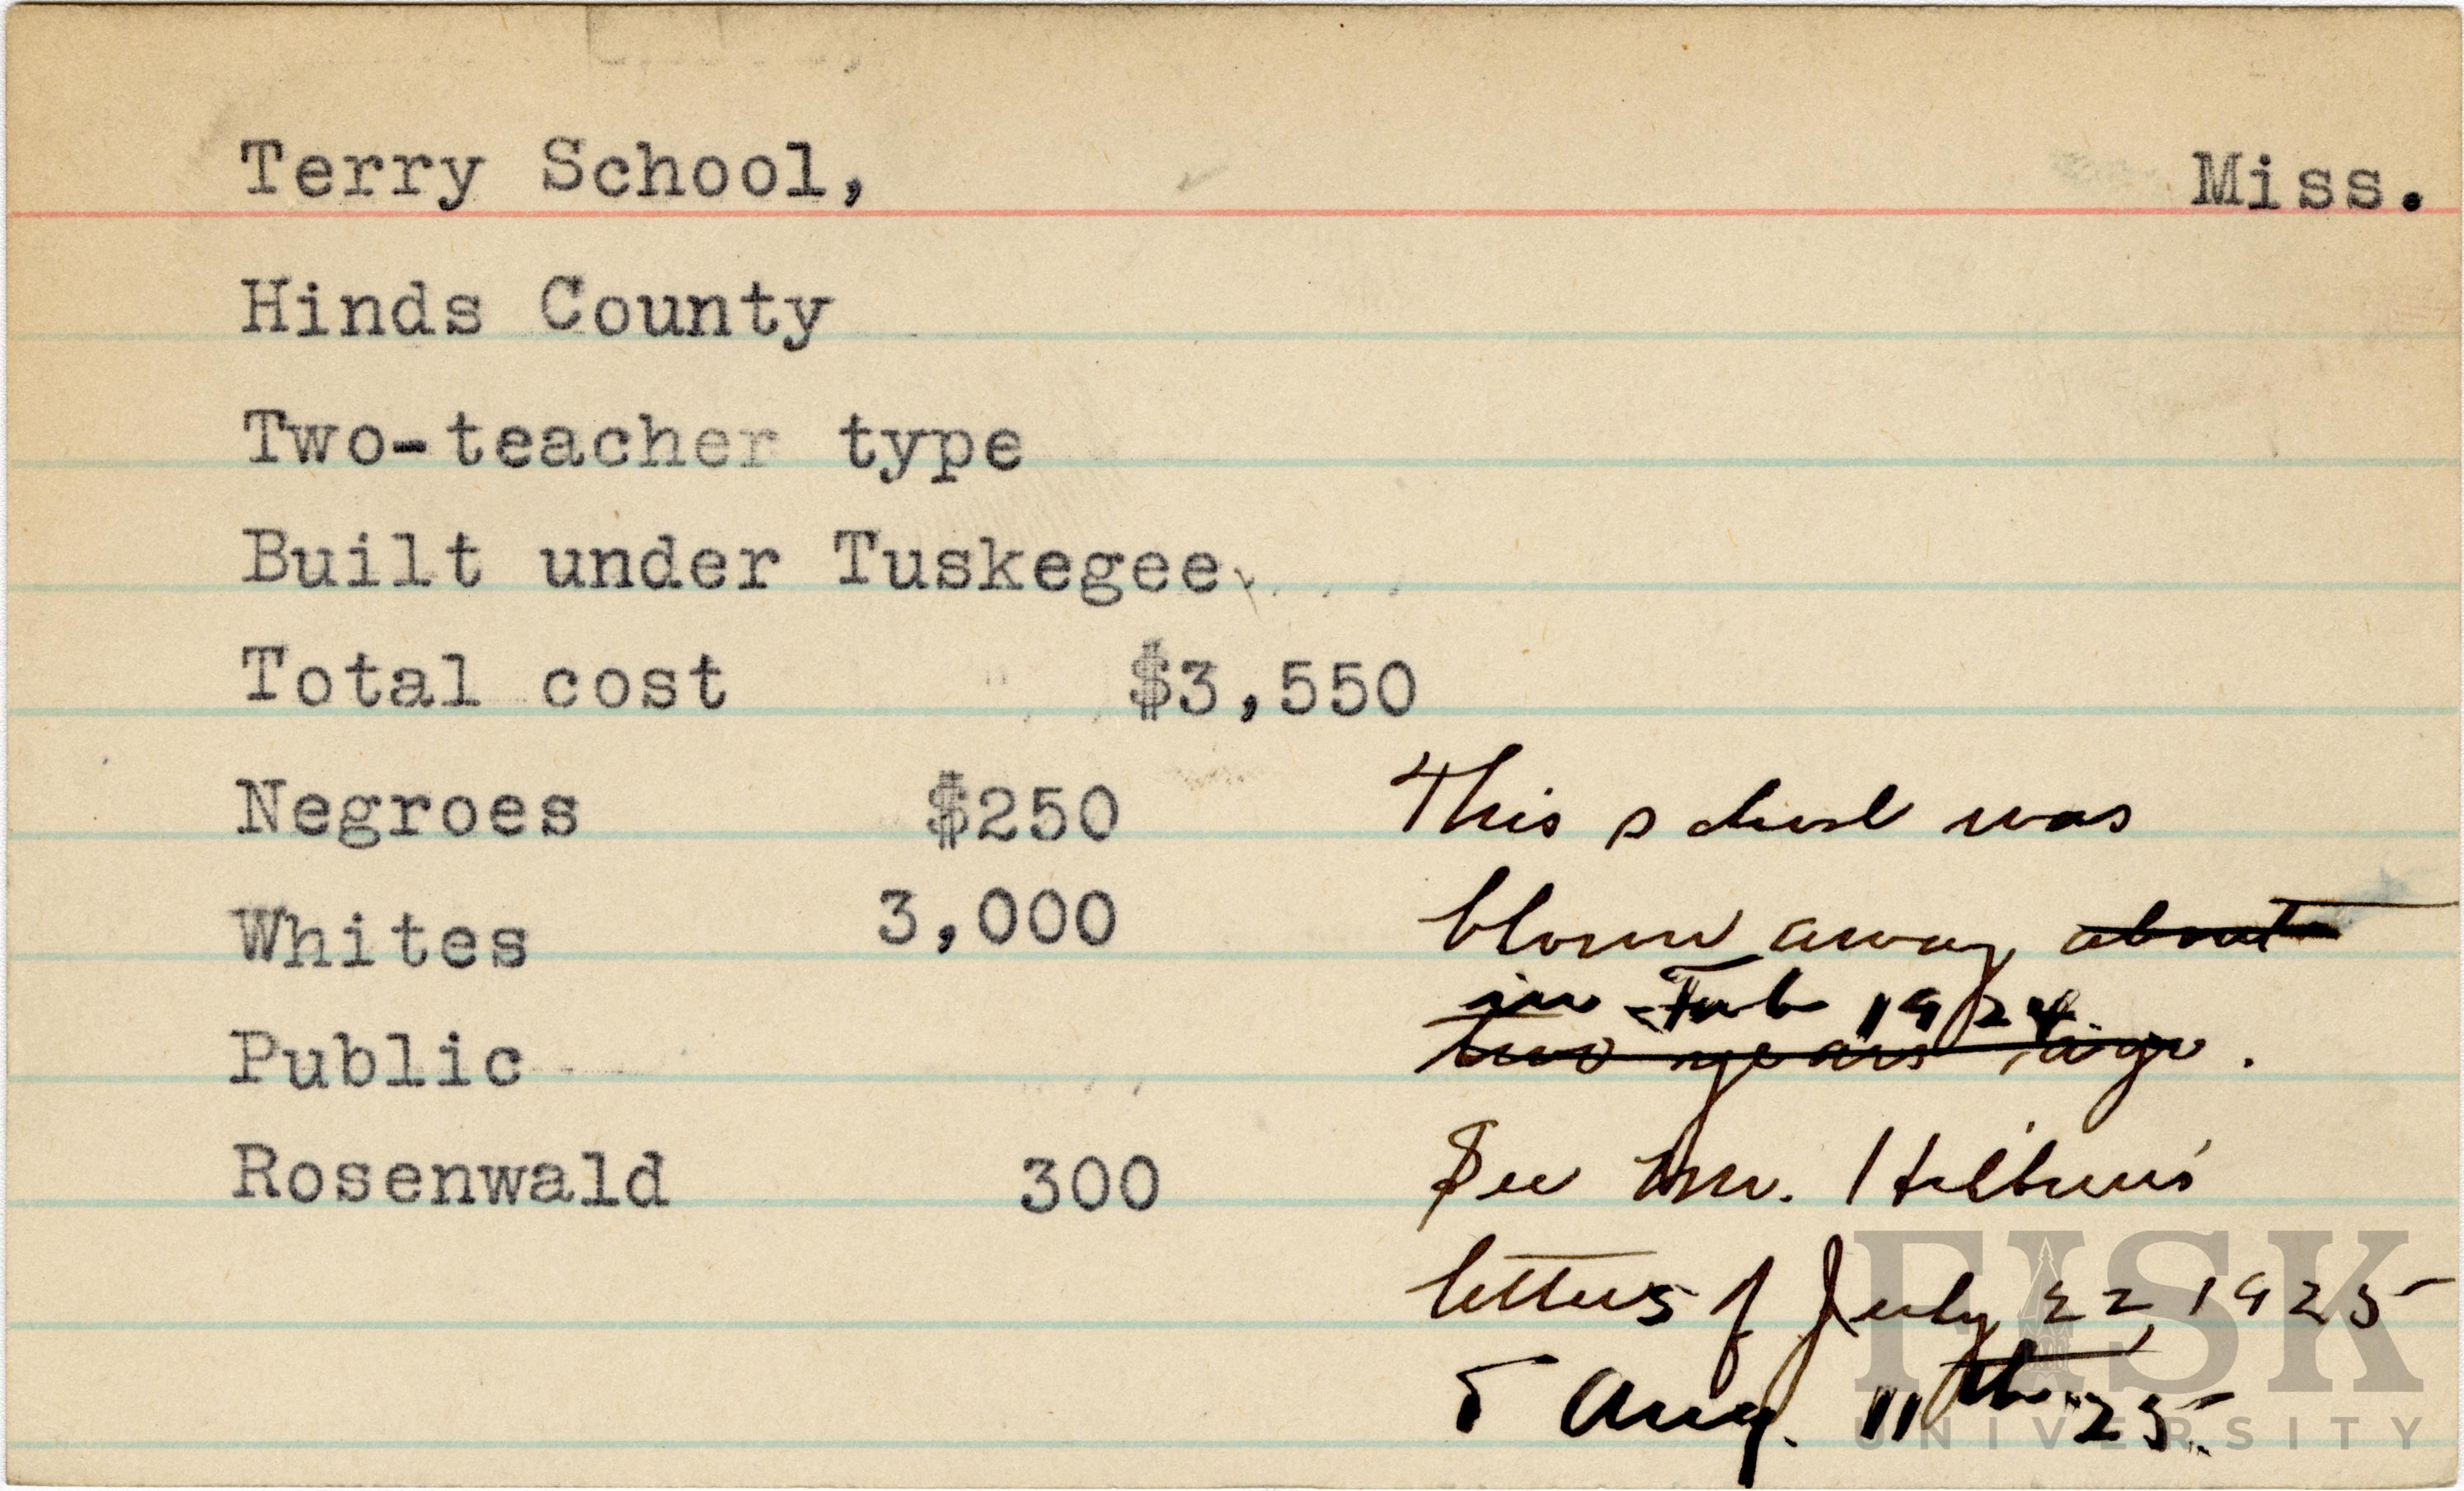 Terry School, Miss.
Hinds County
Two-teacher type
Built under Tuskegee
Total cost $3,550
Negroes $250
Whites 3,000
Public
Rosenwald 300
This school was
blown away about
in Feb 1924
two years ago.
See Mr. Hilbun's
letters of July 22, 1925
& Aug. 11th 25
FISK
UNIVERSITY